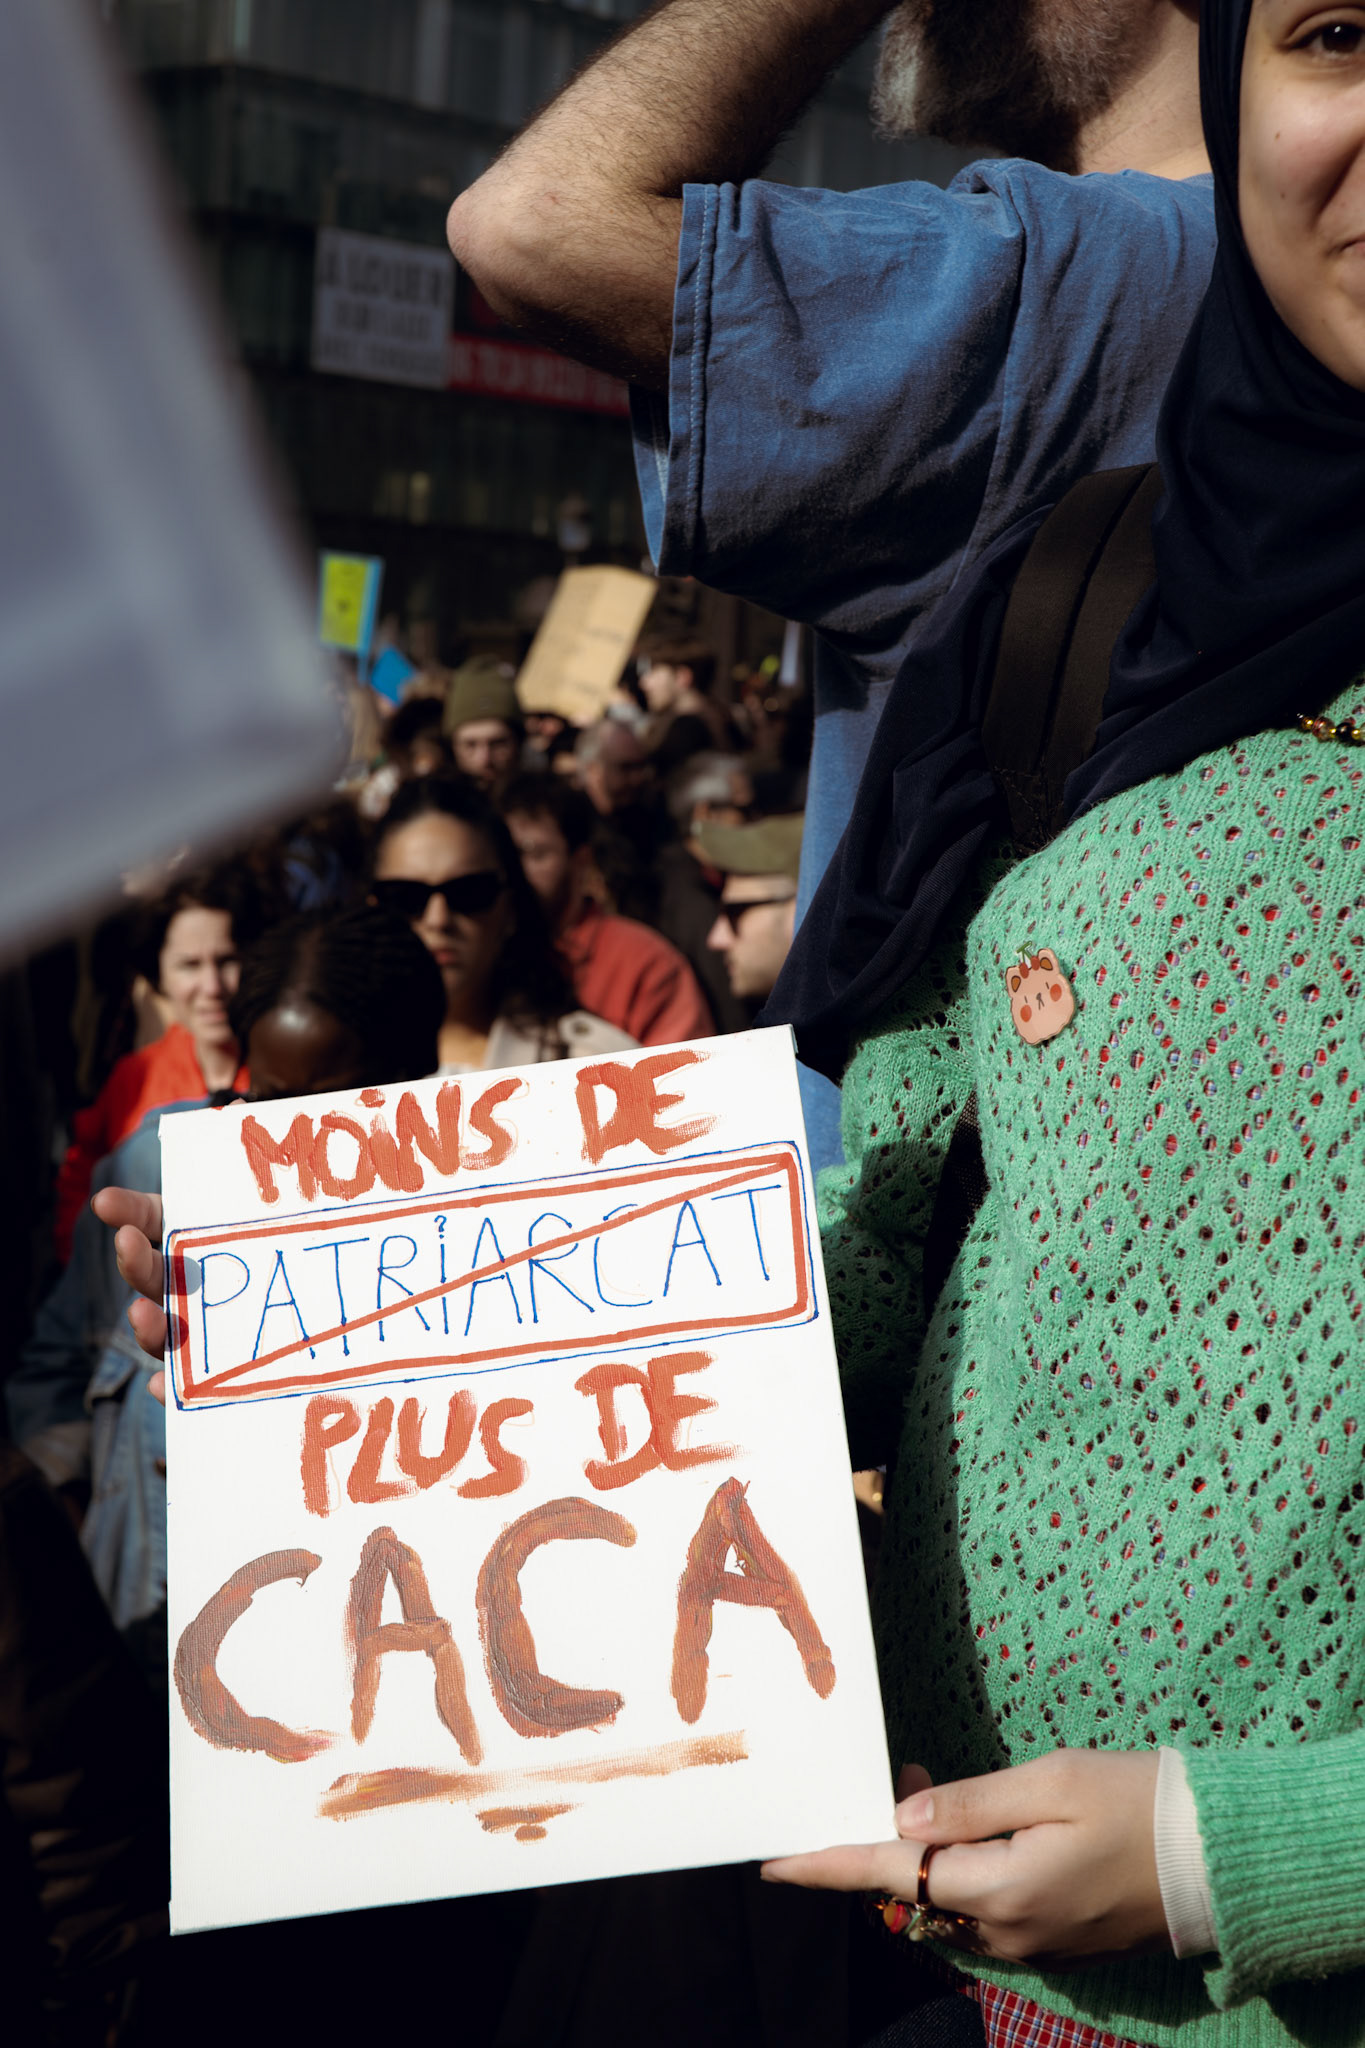 À LOUER
MOiNS DE
PATRiARCAT
PLUS DE
CACA